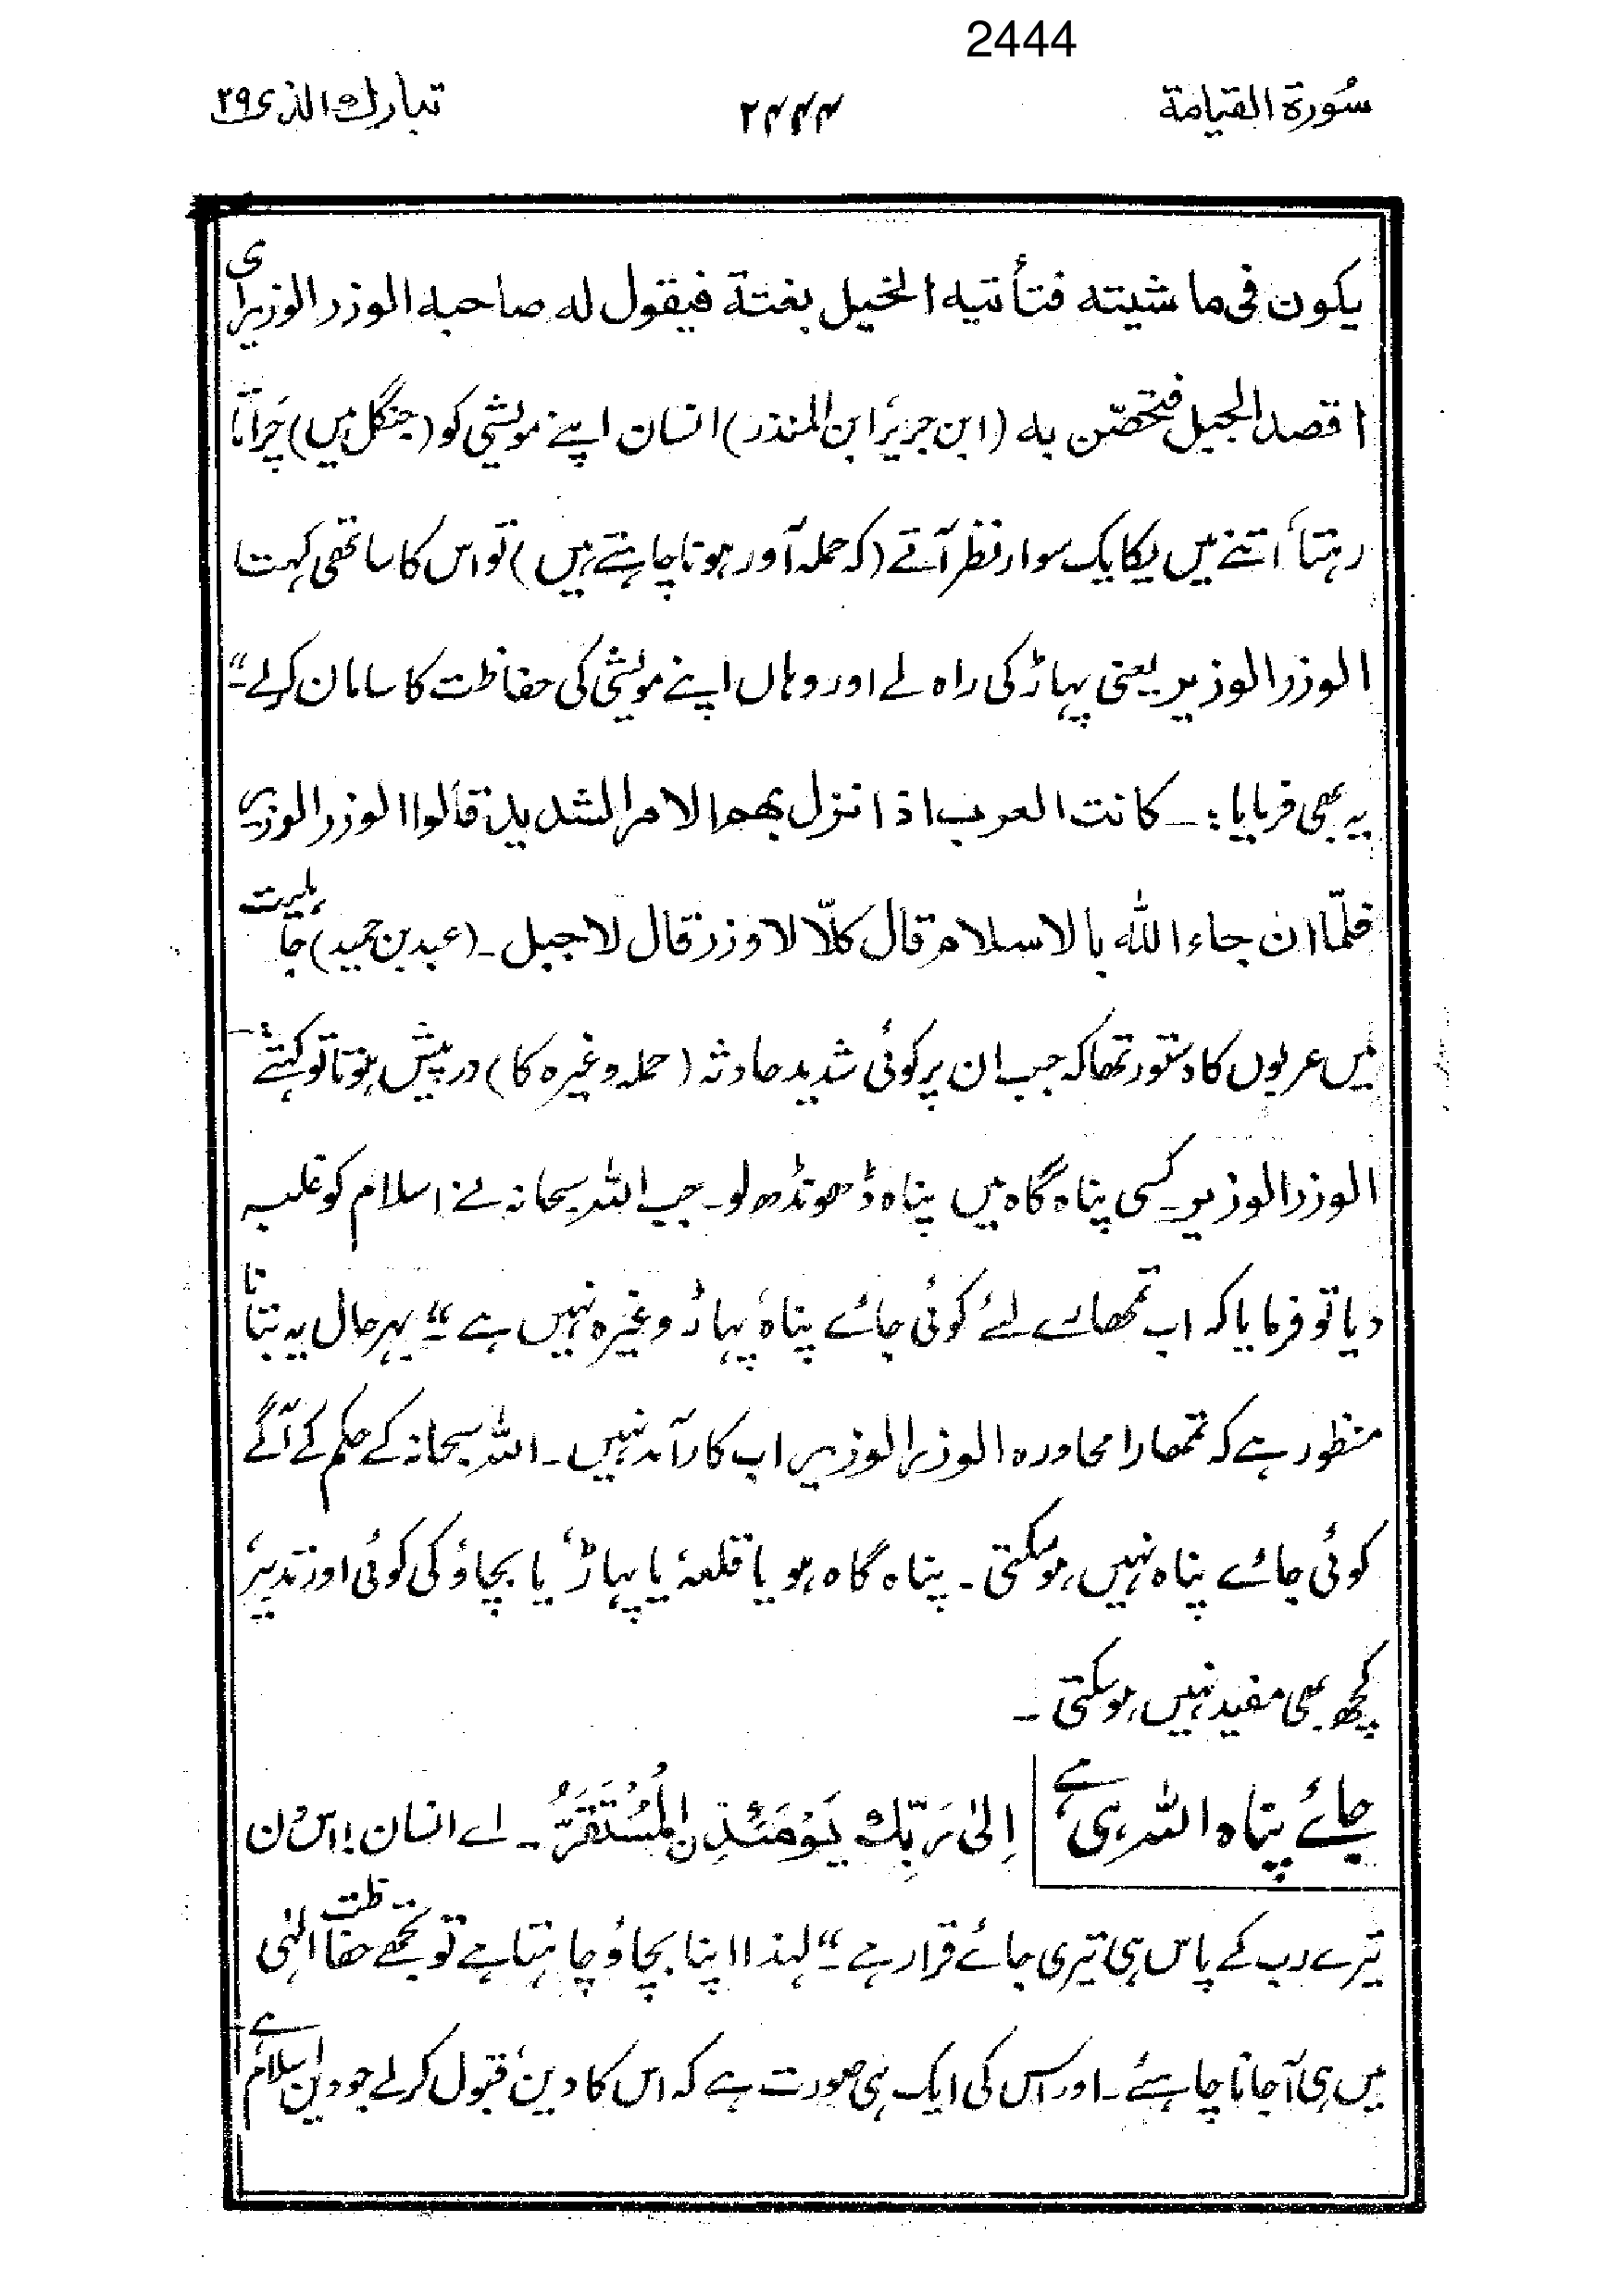 2444
سُورة القیامة ۲۴۴۴ تبارك الذی ۲۹
یکون فی ماشیته فتأتیه الخیل بغتة فیقول له صاحبه الوزر الوزیر ای
اقصد الجبل فتحصّن به (ابن جریر، ابن المنذر) انسان اپنے مویشی کو (جنگل میں) چَراتا
رہتا، اتنے میں یکایک سوار نظر آتے (کہ حملہ آور ہونا چاہتے ہیں) تو اس کا ساتھی کہتا
الوزر الوزیر یعنی پہاڑ کی راہ لے اور وہاں اپنے مویشی کی حفاظت کا سامان کرلے“۔
یہ بھی فرمایا :۔ کانت العرب اذا نزل بهم الامر الشدید قالوا الوزر الوزیر
فلمّا ان جاء الله بالاسلام قال کلّا لا وزر قال لا جبل۔ (عبد بن حمید) جاہلیت
میں عربوں کا دستور تھا کہ جب ان پر کوئی شدید حادثہ (حملہ وغیرہ کا) درپیش ہوتا تو کہتے
الوزر الوزیر۔ کسی پناہ گاہ میں پناہ ڈھونڈھ لو۔ جب اللہ سبحانہ نے اسلام کو غلبہ
دیا تو فرمایا کہ اب تمھارے لئے کوئی جائے پناہ، پہاڑ وغیرہ نہیں ہے“۔ بہرحال یہ بتانا
منظور ہے کہ تمھارا محاورہ الوزر الوزیر اب کارآمد نہیں۔ اللہ سبحانہ کے حکم کے آگے
کوئی جائے پناہ نہیں ہوسکتی۔ پناہ گاہ ہو یا قلعہ، یا پہاڑ، یا بچاؤ کی کوئی اور تدبیر،
کچھ بھی مفید نہیں ہوسکتی۔
جائے پناہ اللہ ہی ہے اِلیٰ رَبِّكَ یَوْمَئِذِنِ الْمُسْتَقَرُّ۔ اے انسان! اس دن
تیرے رب کے پاس ہی تیری جائے قرار ہے“۔ لہذا اپنا بچاؤ چاہتا ہے تو تجھے حفاظت الٰہی
میں ہی آجانا چاہئے۔ اور اس کی ایک ہی صورت ہے کہ اس کا دین، قبول کرلے جو دینِ اسلام ہے